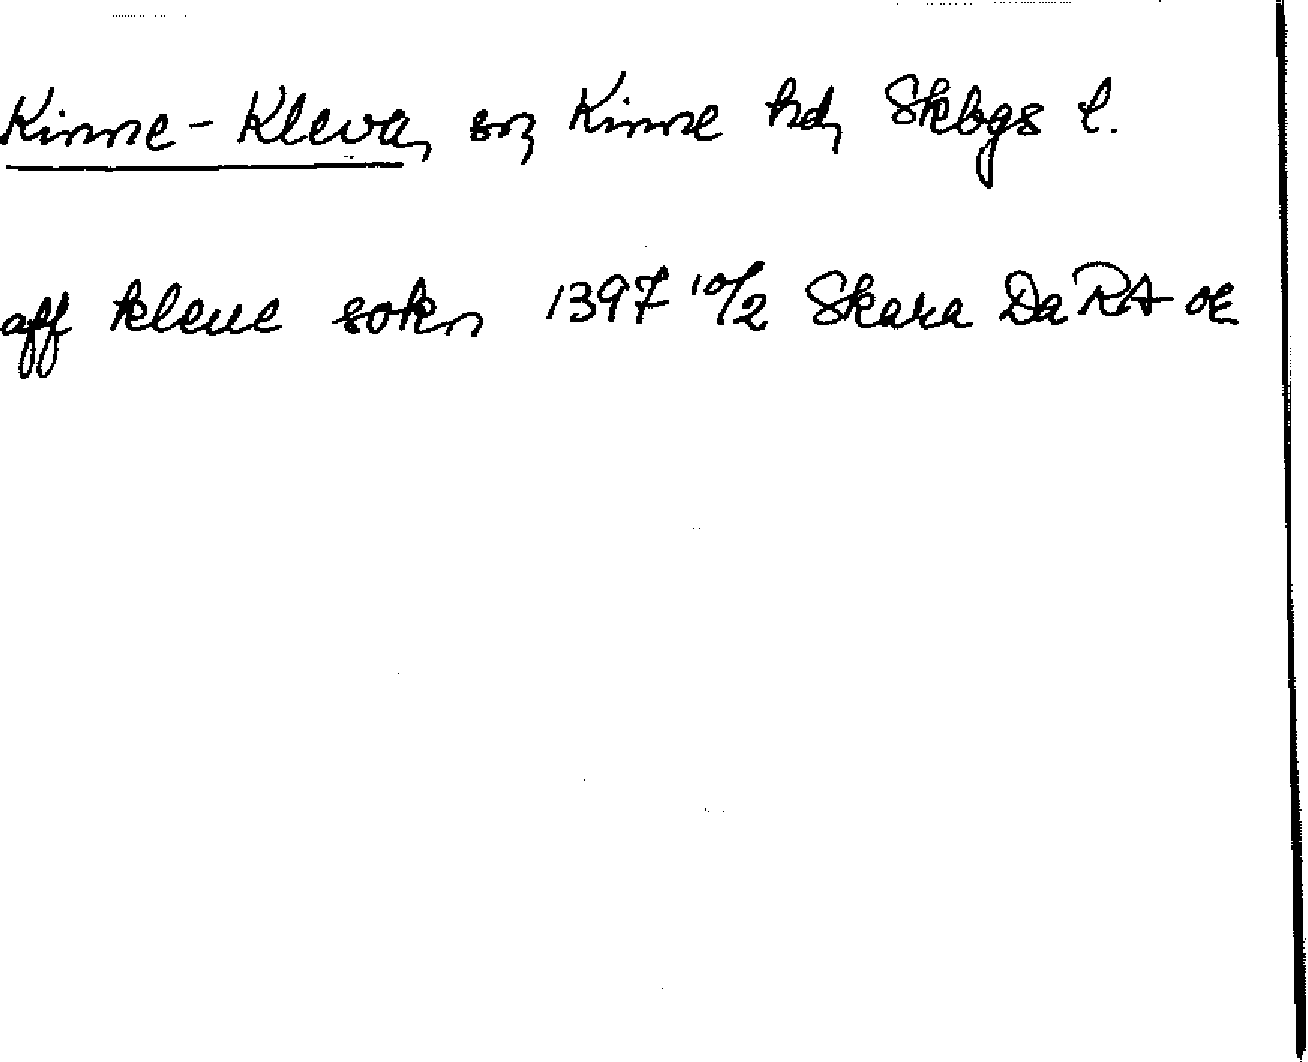 Kinne-Kleva, sn, Kinne hd, Skbgs l.
aff kleue sokn 1397 10/2 Skara DaRA or